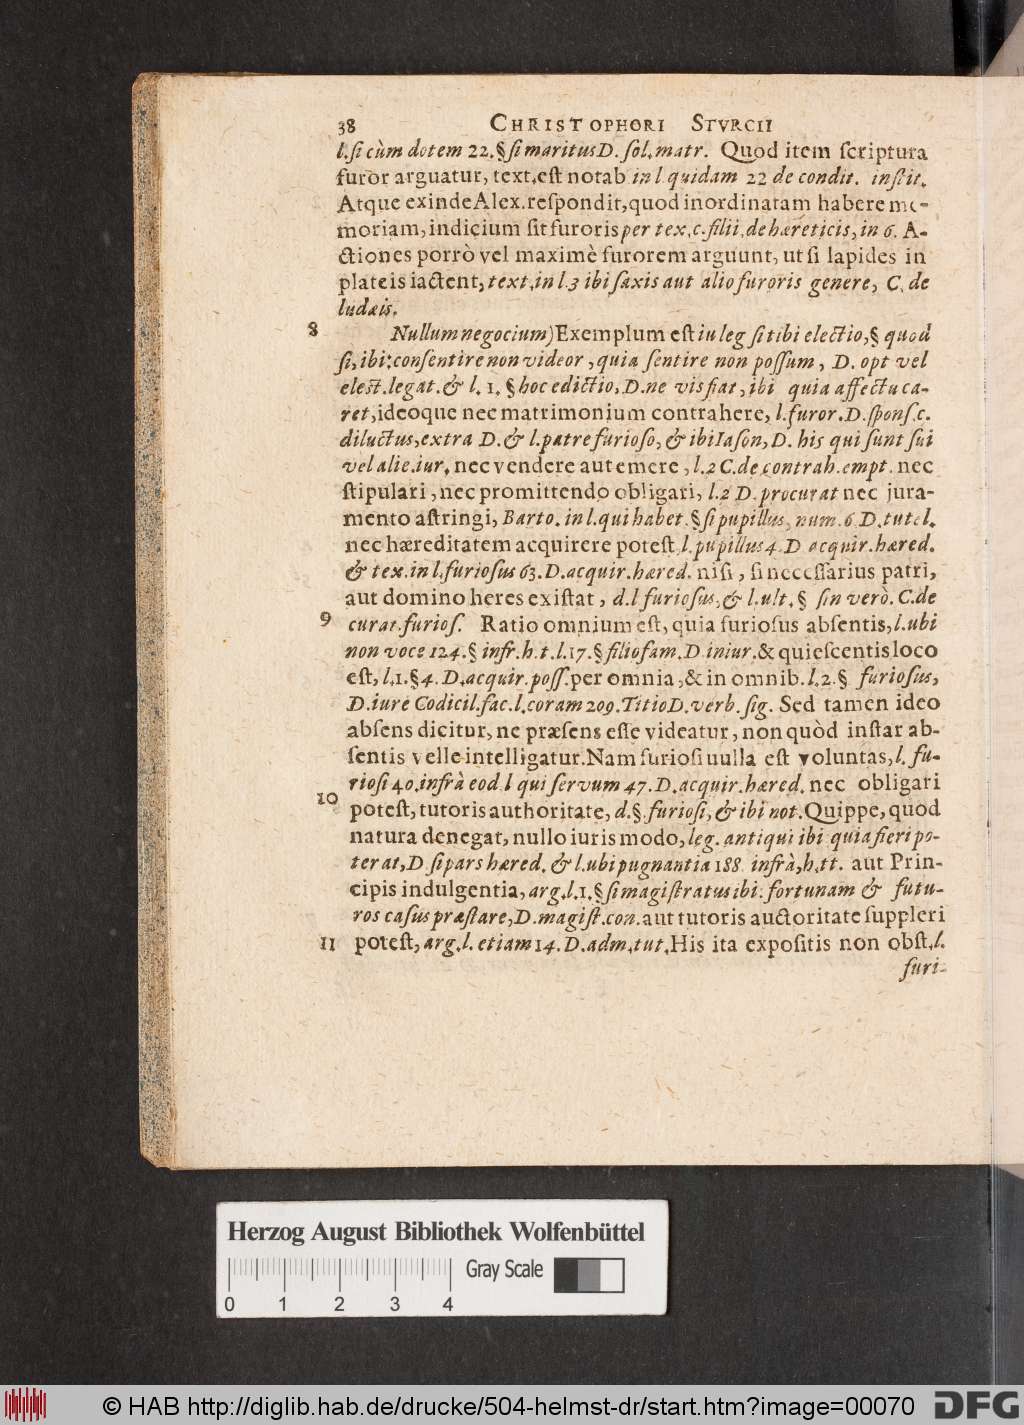 38 CHRISTOPHORI STVRCII
l. ſi cùm dotem 22. § ſi maritus D. ſol. matr. Quod item ſcriptura
furor arguatur, text. eſt notab in l quidam 22 de condit. inſtit.
Atque exinde Alex. reſpondit, quod inordinatam habere me-
moriam, indicium ſit furoris per tex. c. filii. de hæreticis, in 6. A-
ctiones porrò vel maximè furorem arguunt, ut ſi lapides in
plateis iactent, text. in l. 3 ibi ſaxis aut alio furoris genere, C. de
Iudæis.
8 Nullum negocium) Exemplum eſt in leg ſi tibi electio, § quod
ſi, ibi: conſentire non videor, quia ſentire non poſſum, D. opt vel
elect. legat. & l. 1. § hoc edictio, D. ne vis fiat, ibi quia affectu ca-
ret, ideoque nec matrimonium contrahere, l. furor. D. ſponſ. c.
diluctus, extra D. & l. patre furioſo, & ibi Iaſon, D. his qui ſunt ſui
vel alie. iur. nec vendere aut emere, l. 2 C. de contrah. empt. nec
ſtipulari, nec promittendo obligari, l. 2 D. procurat nec jura-
mento aſtringi, Barto. in l. qui habet. § ſi pupillus, num. 6 D. tutel.
nec hæreditatem acquirere poteſt l. pupillus 4. D acquir. hæred.
& tex. in l. furioſus 63. D. acquir. hæred. niſi, ſi neceſſarius patri,
aut domino heres exiſtat, d. l furioſus, & l. ult. § ſin verò. C. de
9 curat. furioſ. Ratio omnium eſt, quia furioſus abſentis, l. ubi
non voce 124. § infr. h. t. l. 17. § filiofam. D. iniur. & quieſcentis loco
eſt, l. 1. § 4. D. acquir. poſſ. per omnia, & in omnib. l. 2. § furioſus,
D. iure Codicil. fac. l. coram 209. Titio D. verb. ſig. Sed tamen ideo
abſens dicitur, ne præſens eſſe videatur, non quòd inſtar ab-
ſentis velle intelligatur. Nam furioſi nulla eſt voluntas, l. fu-
rioſi 40. infrà eod. l qui ſervum 47. D. acquir. hæred. nec obligari
10 poteſt, tutoris authoritate, d. §. furioſi, & ibi not. Quippe, quod
natura denegat, nullo iuris modo, leg. antiqui ibi quia fieri po-
terat, D. ſi pars hæred. & l. ubi pugnantia 188 infrà, h. tt. aut Prin-
cipis indulgentia, arg. l. 1. § ſi magiſtratus ibi: fortunam & futu-
ros caſus præſtare, D. magiſt. con. aut tutoris auctoritate ſuppleri
11 poteſt, arg. l. etiam 14. D. adm. tut. His ita expoſitis non obſt. l.
furi-
Herzog August Bibliothek Wolfenbüttel
Gray Scale
0 1 2 3 4
© HAB http://diglib.hab.de/drucke/504-helmst-dr/start.htm?image=00070 DFG